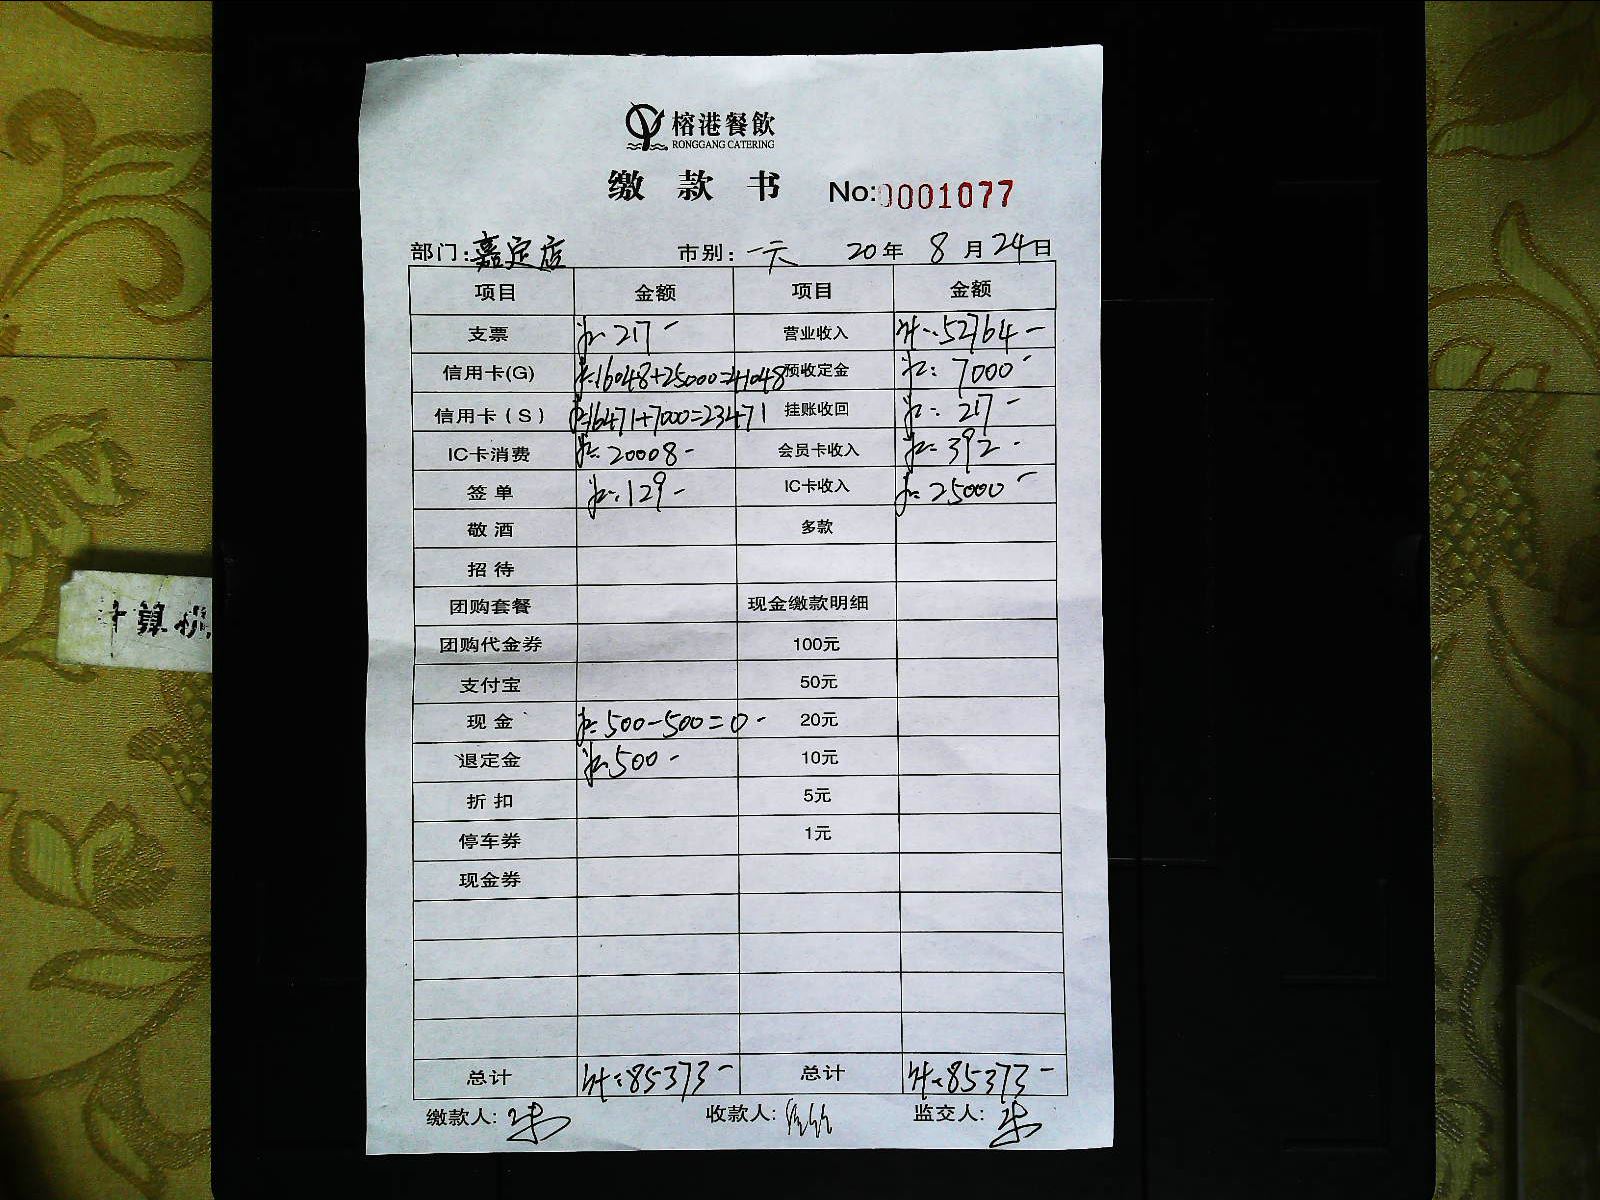 榕港餐飲
RONGGANG CATERING
缴 款 书 No:0001077
部门: 嘉定店 市别: 一天 20年 8月 24日
项目 金额 项目 金额
支票 217- 营业收入 52764-
信用卡(G) 16048+25000=41048 预收定金 7000-
信用卡(S) 16471+7000=23471 挂账收回 217-
IC卡消费 20008- 会员卡收入 392-
签单 129- IC卡收入 25000-
敬酒 多款
招待
团购套餐 现金缴款明细
团购代金券 100元
支付宝 50元
现金 500-500=0- 20元
退定金 500- 10元
折扣 5元
停车券 1元
现金券
总计 85373- 总计 85373-
缴款人: 收款人: 监交人:
计算机